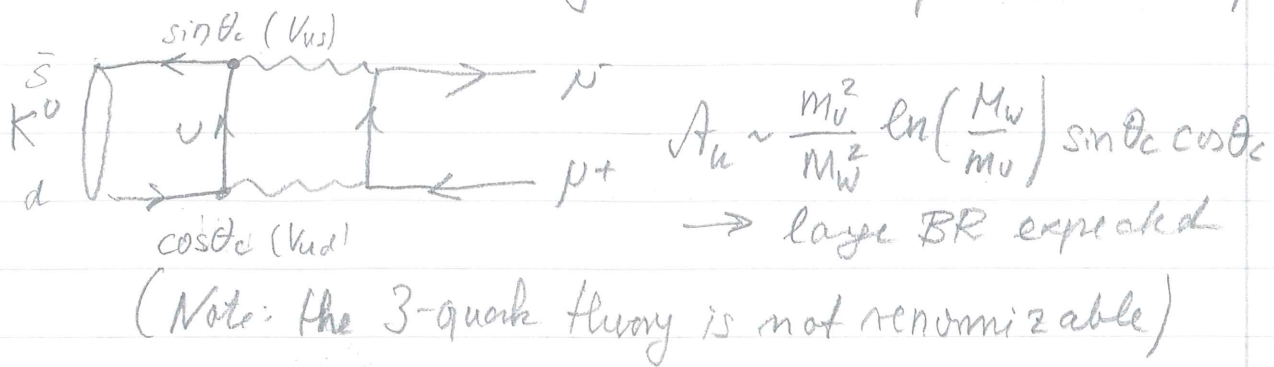 sinθc (Vus)
s̄
K⁰
u
d
cosθc (Vud)
μ-
μ+
Au ~ mu²/MW² ln(MW/mu) sinθc cosθc
→ large BR expected
(Note: the 3-quark theory is not renomizable)